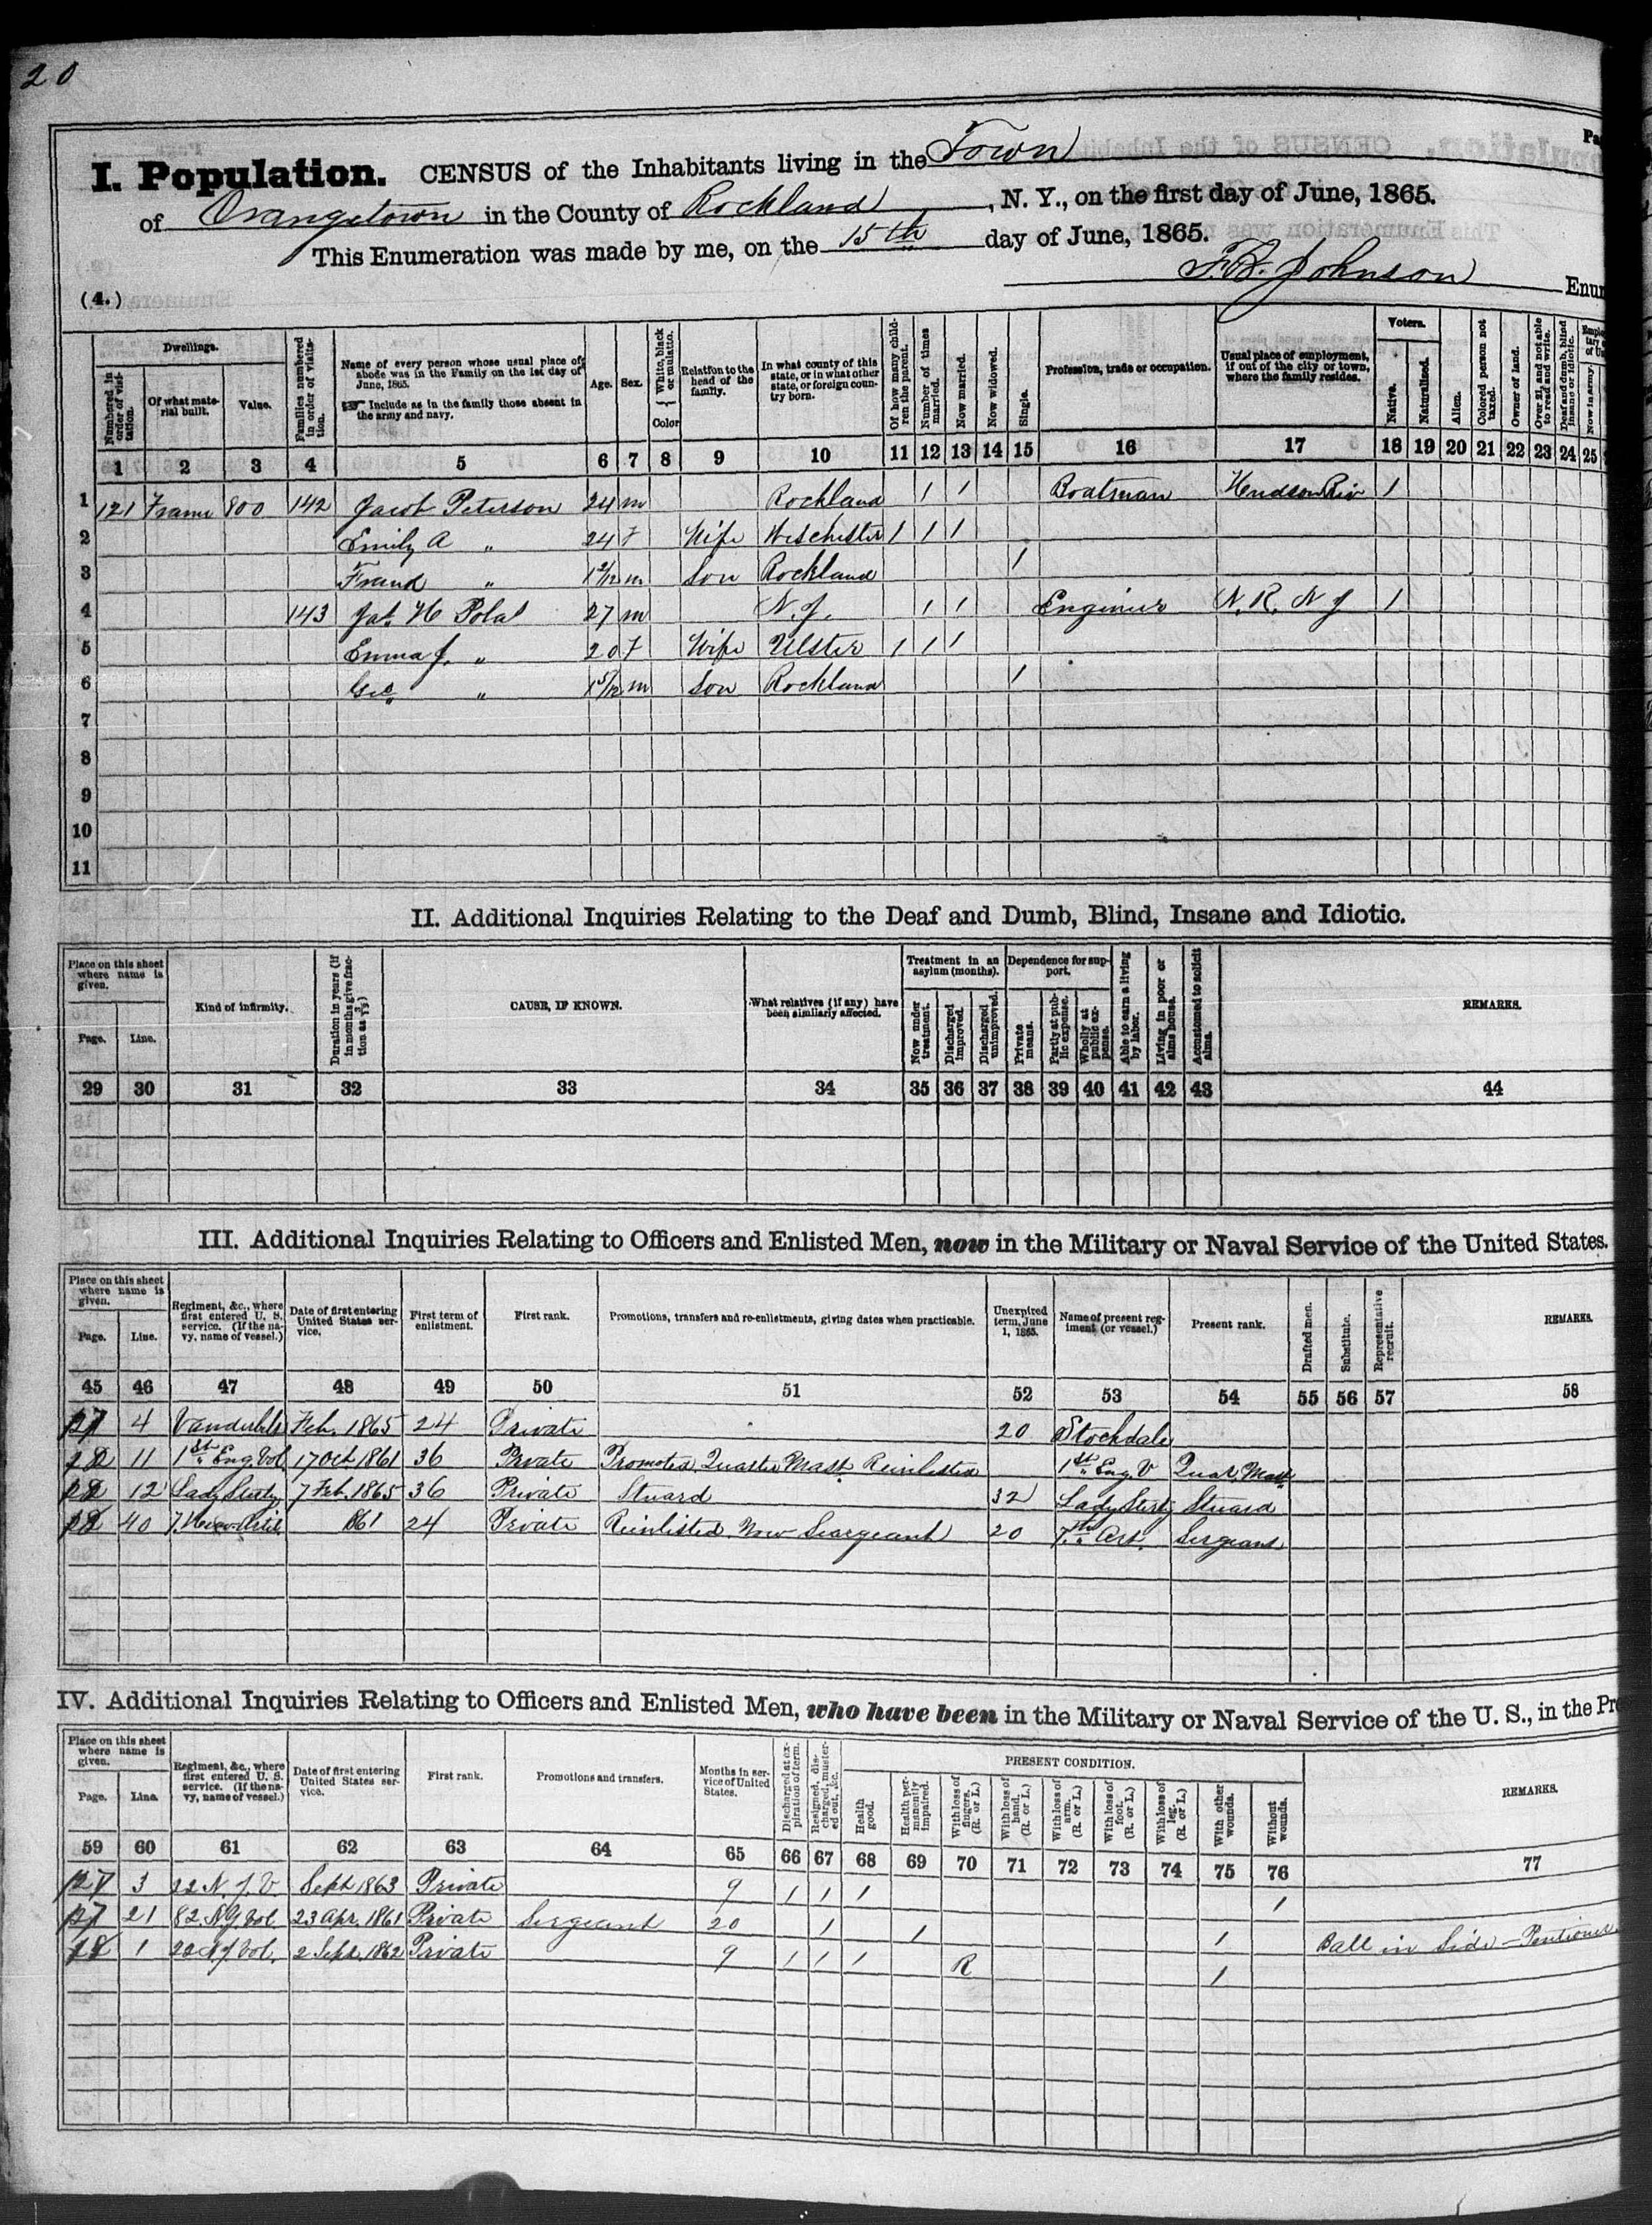 20
Pa
I. Population. CENSUS of the Inhabitants living in the Town
of Orangetown in the County of Rockland, N. Y., on the first day of June, 1865.
This Enumeration was made by me, on the 15th day of June, 1865.
(4.) F.B. Johnson Enum
Dwellings. Voters.
Numbered in order of visitation. Of what material built. Value. Families numbered in order of visitation. Name of every person whose usual place of abode was in the Family on the 1st day of June, 1865. Include as in the family those absent in the army and navy. Age. Sex. White, black or mulatto. Color Relation to the head of the family. In what county of this state, or in what other state, or foreign country born. Of how many children the parent. Number of times married. Now married. Now widowed. Single. Profession, trade or occupation. Usual place of employment, if out of the city or town, where the family resides. Native. Naturalized. Alien. Colored person not taxed. Owner of land. Over 21, and not able to read and write. Deaf and dumb, blind insane or idiotic. Now in army.
1 2 3 4 5 6 7 8 9 10 11 12 13 14 15 16 17 18 19 20 21 22 23 24 25
1 121 Frame 800 142 Jacob Peterson 24 m Rockland 1 1 Boatman Hudson Riv 1
2 Emily A " 24 F Wife Weschester 1 1 1
3 " 1 2/12 m Son Rockland 1
4 143 Jas. H 27 m N. J. 1 1 Engineer N. R. N J 1
5 Emma J. " 20 F Wife Ulster 1 1 1
6 Geo " 1 5/12 m Son Rockland 1
7
8
9
10
11
II. Additional Inquiries Relating to the Deaf and Dumb, Blind, Insane and Idiotic.
Place on this sheet where name is given. Page. Line. Kind of infirmity. Duration in years (if in months give fraction as 3/12) CAUSE, IF KNOWN. What relatives (if any) have been similarly affected. Treatment in an asylum (months). Now under treatment. Discharged improved. Discharged unimproved. Dependence for support. Private means. Partly at public expense. Wholly at public expense. Able to earn a living by labor. Living in poor or alms house. Accustomed to solicit alms. REMARKS.
29 30 31 32 33 34 35 36 37 38 39 40 41 42 43 44
III. Additional Inquiries Relating to Officers and Enlisted Men, now in the Military or Naval Service of the United States.
Place on this sheet where name is given. Page. Line. Regiment, &c., where first entered U. S. service. (If the navy, name of vessel.) Date of first entering United States service. First term of enlistment. First rank. Promotions, transfers and re-enlistments, giving dates when practicable. Unexpired term, June 1, 1865. Name of present regiment (or vessel.) Present rank. Drafted men. Substitute. Representative recruit. REMARKS.
45 46 47 48 49 50 51 52 53 54 55 56 57 58
4 Vanderbilt Feb. 1865 24 Private 20 Stockdale
11 1st Eng. Vol. 17 Oct 1861 36 Private Promoted Quarter Mast Reinlisted 1st Eng. V Quar. Mast
12 7 Feb. 1865 36 Private Stuard 32 Stuard
40 861 24 Private Reinlisted Now Seargeant 20 7th Art. Sergeant
IV. Additional Inquiries Relating to Officers and Enlisted Men, who have been in the Military or Naval Service of the U. S., in the Pre
Place on this sheet where name is given. Page. Line. Regiment, &c., where first entered U. S. service. (If the navy, name of vessel.) Date of first entering United States service. First rank. Promotions and transfers. Months in service of United States. Discharged at expiration of term. Resigned, discharged, mustered out, &c. PRESENT CONDITION. Health good. Health permanently impaired. With loss of fingers. (R. or L.) With loss of hand. (R. or L.) With loss of arm. (R. or L.) With loss of foot. (R. or L.) With loss of leg. (R. or L.) With other wounds. Without wounds. REMARKS.
59 60 61 62 63 64 65 66 67 68 69 70 71 72 73 74 75 76 77
3 22 N. J. V. Sept 1863 Private 9 1 1 1 1
21 82. N.Y. Vol. 23 Apr. 1861 Private Sergeant 20 1 1 1 Ball in Side -
1 22 N.J. Vol. 2 Sept. 1862 Private 9 1 1 1 R 1